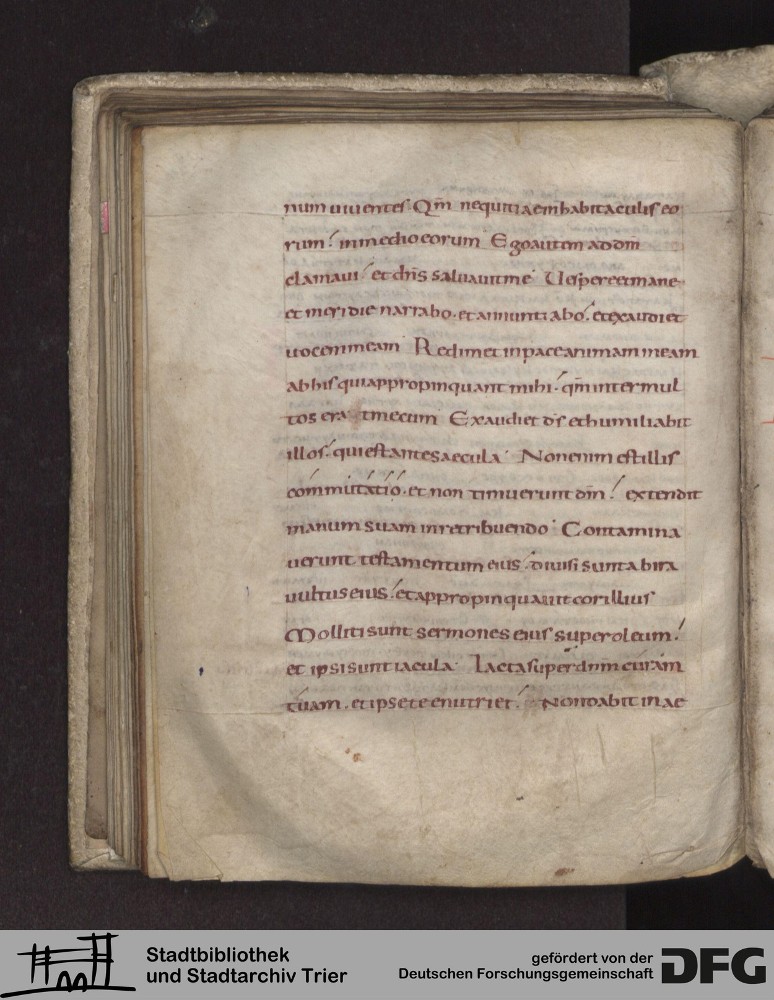 num uiuentes· Qm̄ nequitiae in habitaculis eo
rum! in medio eorum· Ego autem ad dm̄
clamaui! et dn̄s saluauit me· Uespere et mane
et meridie narrabo· et annuntiabo! et exaudiet
uocem meam· Redimet in pace animam meam
ab his qui appropinquant mihi! qm̄ inter mul
tos era t mecum· Exaudiet ds̄ et humiliabit
illos! qui est ante saecula· Non enim est illis
commutatio· et non timuerunt dm̄! extendit
manum suam in retribuendo· Contamina
uerunt testamentum eius! diuisi sunt ab ira
uultus eius! et appropinquauit cor illius
Molliti sunt sermones eius super oleum!
et ipsi sunt iacula· Iacta super dnm curam
tuam· et ipse te enutriet! Non dabit in ae
Stadtbibliothek
und Stadtarchiv Trier
gefördert von der
Deutschen Forschungsgemeinschaft
DFG